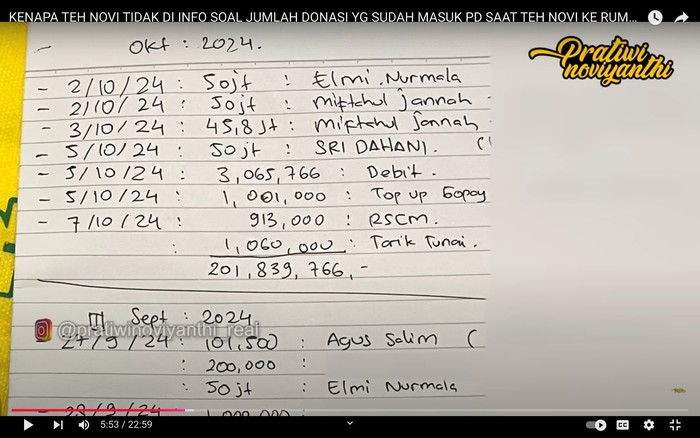 KENAPA TEH NOVI TIDAK DI INFO SOAL JUMLAH DONASI YG SUDAH MASUK PD SAAT TEH NOVI KE RUM...
Pratiwi
noviyanthi
- Okt : 2024.
- 2/10/24 : 50jt : Elmi. Nurmala
- 2/10/24 : 50jt : miftahul jannah -
- 3/10/24 : 45,8 jt : miftahul jannah -
- 5/10/24 : 50jt : SRI DAHANI. (
- 5/10/24 : 3,065,766 : Debit.
- 5/10/24 : 1,001,000 : Top up Gopay
- 7/10/24 : 913,000 : RSCM.
: 1,060,000 : Tarik Tunai.
201,839,766,-
III Sept : 2024
@pratiwinoviyanthi_real
27/9/24 : 101,500 : Agus Salim (
: 200,000 :
: 50jt : Elmi Nurmala
- 28/9/24 :
5:53 / 22:59
CC HD